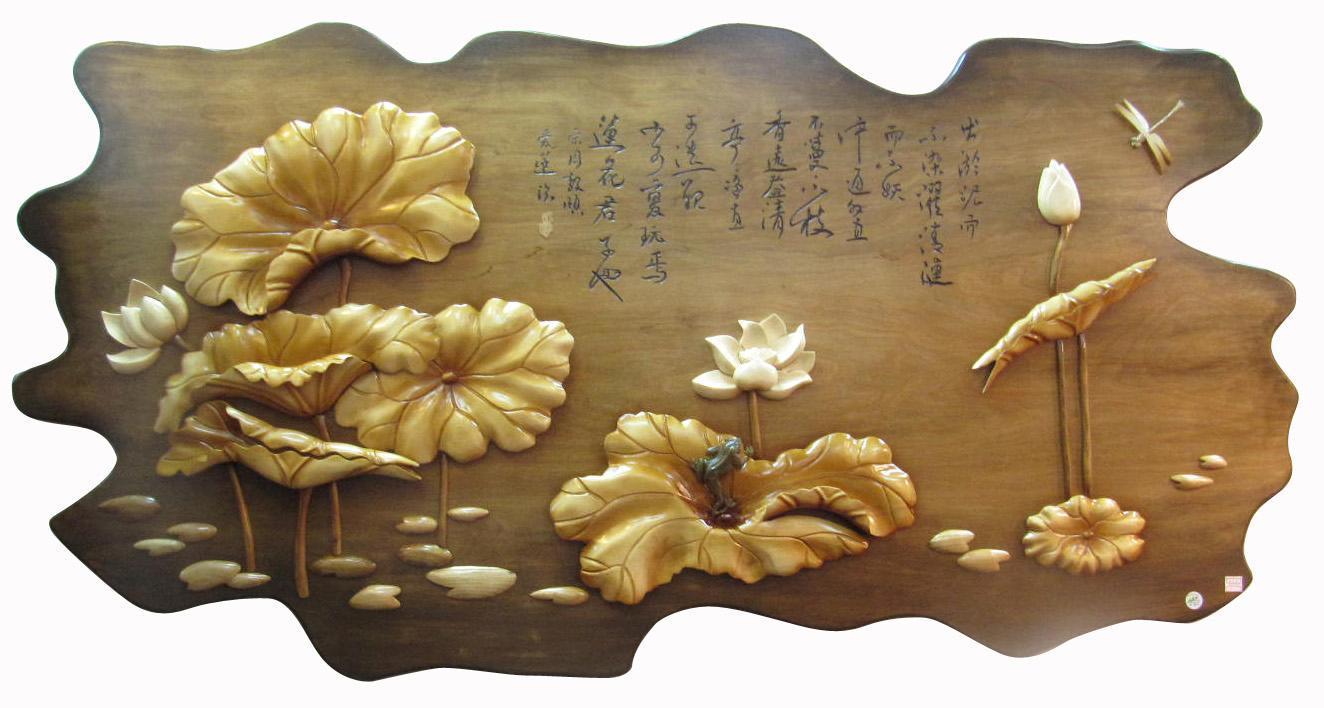 出淤泥而
不染濯清漣
而不妖
中通外直
不蔓不枝
香遠益清
亭淨直
可遠觀
不可褻玩焉
蓮花君子也
宋周敦頤
愛蓮説